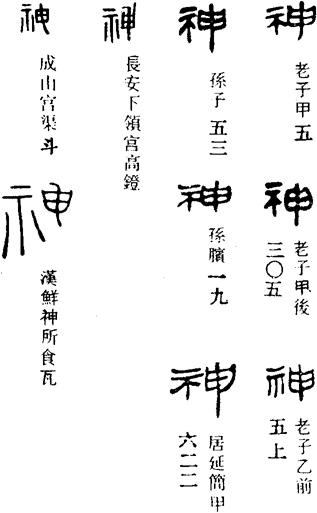 神
老子甲五
神
老子甲後
三〇五
神
老子乙前
五上
神
孫子五三
神
孫臏一九
神
居延簡甲
六二二
神
長安下領宮高鐙
神
成山宮渠斗
神
漢鮮神所食瓦